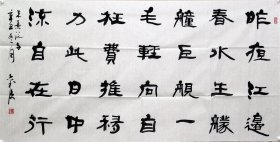 昨夜江邊
春水生艨
艟巨艦一
毛輕向自
枉費推移
力此日中
流自在行